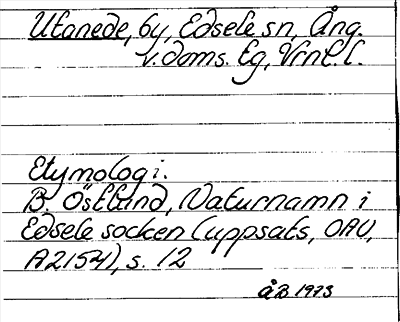 Utanede, by, Edsele sn, Ång.
v. doms. tg, Vrnl. l.
Etymologi.
B. Östlund, Naturnamn i
Edsele socken (uppsats, OAU,
A2154), s. 12
åB 1973